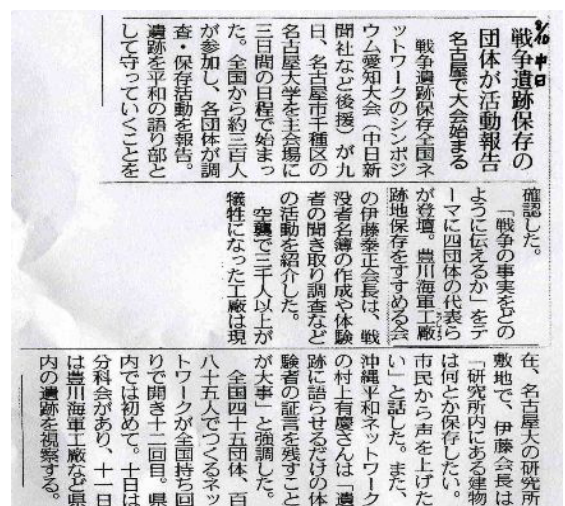 8/10 中日
戦争遺跡保存の
団体が活動報告
名古屋で大会始まる
戦争遺跡保存全国ネ
ットワークのシンポジ
ウム愛知大会(中日新
聞社など後援)が九
日、名古屋市千種区の
名古屋大学を主会場に
三日間の日程で始まっ
た。全国から約三百人
が参加し、各団体が調
査・保存活動を報告。
遺跡を平和の語り部と
して守っていくことを
確認した。
「戦争の事実をどの
ように伝えるか」をテ
ーマに四団体の代表ら
が登壇。豊川海軍工廠
跡地保存をすすめる会
の伊藤泰正会長は、戦
没者名簿の作成や体験
者の聞き取り調査など
の活動を紹介した。
空襲で三千人以上が
犠牲になった工廠は現
在、名古屋大の研究所
敷地で、伊藤会長は
「研究所内にある建物
は何とか保存したい。
市民から声を上げた
い」と話した。また、
沖縄平和ネットワーク
の村上有慶さんは「遺
跡に語らせるだけの体
験者の証言を残すこと
が大事」と強調した。
全国四十五団体、百
八十五人でつくるネッ
トワークが全国持ち回
りで開き十二回目。県
内では初めて。十日は
分科会があり、十一日
は豊川海軍工廠など県
内の遺跡を視察する。